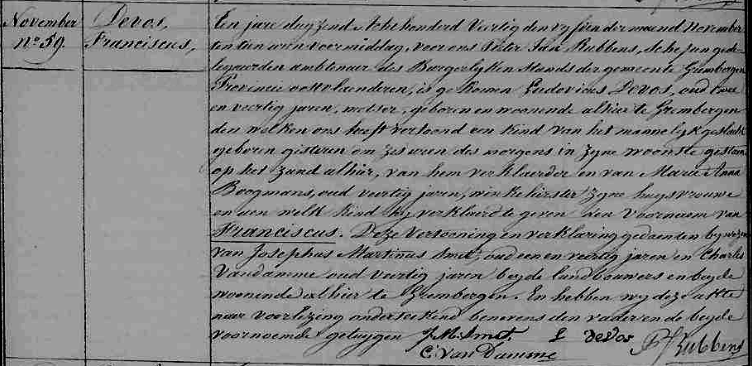 November
n° 59.
Devos,
Franciscus,
Een jare duyzend Achthonderd Veertig den vyfden der maend November
ten tien uren voormiddag, voor ons Pieter Jan Rubbens, schepen gede-
legeerden ambtenaer des Borgerlyken Stands der gemeente Grembergen
Provincie oostvlanderen, is gekomen Ludovicus Devos, oud twee
en veertig jaren, metser, geboren en woonende alhier te Grembergen
den welken ons heeft vertoond een kind van het mannelyk geslacht
geboren gisteren om zes uren des morgens in zyne woonste gestaen
op het zand alhier, van hem verklaerder en van Marie Anna
Boogmans, oud veertig jaren, winkelierster zyne huysvrouwe
en aen welk kind hy verklaerd te geven den Voornaem van
Franciscus. Deze vertooning en verklaring gedaen ten bywezen
van Josephus Martinus Smet, oud een en veertig jaren en Charles
Vandamme oud veertig jaren beyde landbouwers en beyde
woonende alhier te Grembergen. En hebben wy deze akte
naer voorlezing onderteekend benevens den vader en de beyde
voornoemde getuygen J. M. Smet. L devos
C. Van Damme P J Rubbens